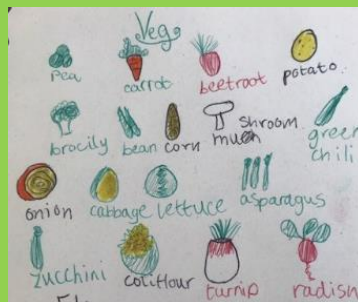 Veg
pea carrot beetroot potato
brocily bean corn shroom
green
chili
onion cabbage lettuce asparagus
zucchini coliflour turnip radish